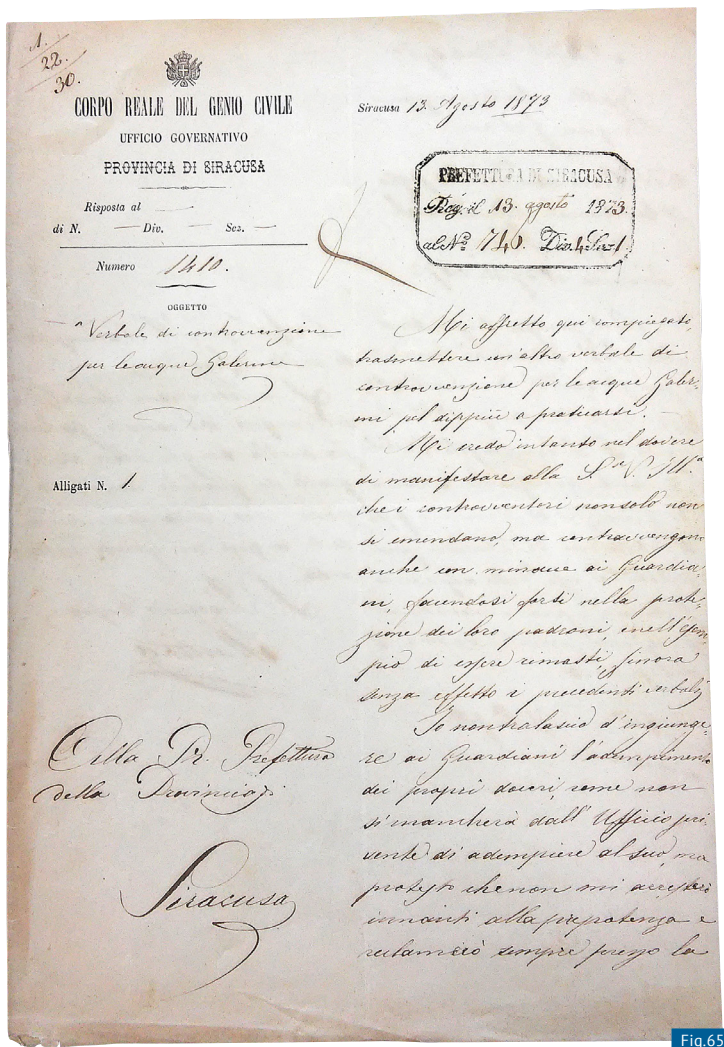 1.
22.
30.
CORPO REALE DEL GENIO CIVILE
UFFICIO GOVERNATIVO
PROVINCIA DI SIRACUSA
Risposta al
di N. Div. Sez.
Numero 1410.
OGGETTO
Verbale di contravvenzione
per le acque Galermi
Alligati N. 1.
Alla R. Prefettura
della Provincia di
Siracusa
Siracusa 13. Agosto 1873
PREFETTURA DI SIRACUSA
il 13. agosto 1873.
al No. 740. Div. 4 Sez. 1
Mi affretto qui compiegato,
trasmettere un'altro verbale di
contravvenzione per le acque Galer-
mi pel dippiù a praticarsi.
Mi credo intanto nel dovere
di manifestare alla S.a V. Ill.a
che i contravventori non solo non
si emendano, ma contravvengono
anche con minacce ai Guardia-
ni, facendosi forti nella prote-
zione dei loro padroni, e nell'esem-
pio di essere rimasti, finora
senza effetto i precedenti verbali
Io non tralascio d'ingiunge-
re ai Guardiani l'adempimento
dei propri doveri, come non
si mancherà dall'Ufficio scri-
vente di adempiere al suo, ma
protesto che non mi arresterò
innanti alla prepotenza e
reclamerò sempre presso la
Fig.65